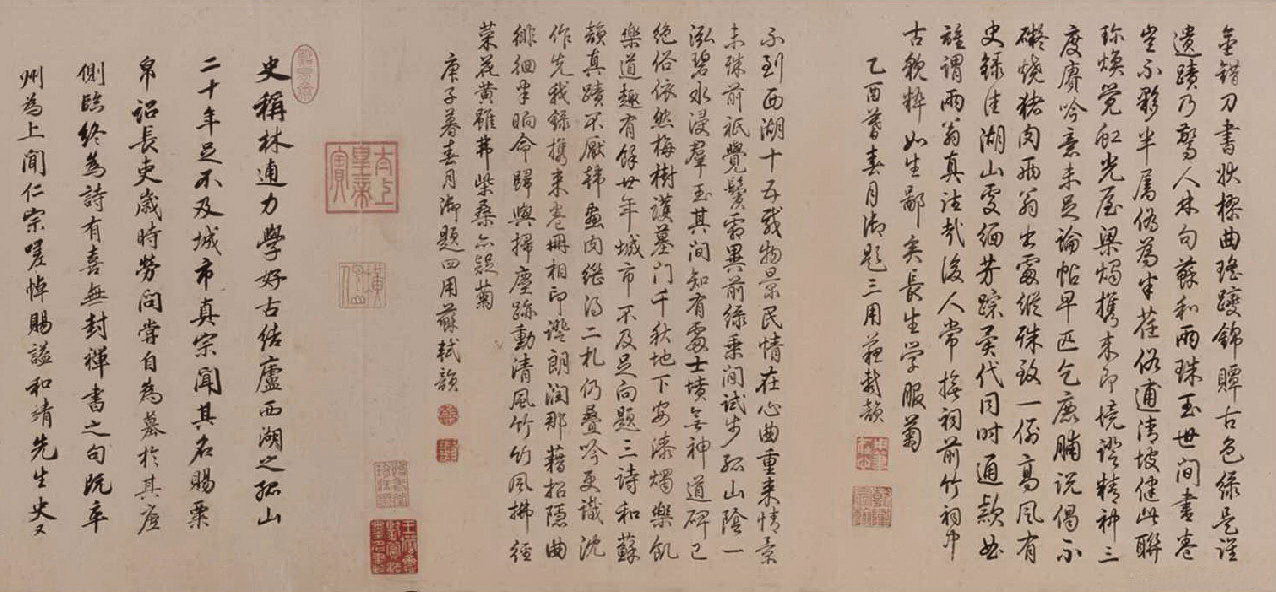 金錯刀書妝褾曲瑤躞錦贉古色綠是誰
遺蹟乃驚人林句蘇和兩珠玉世間書卷
豈不夥半屬偽為半荏俗逋清坡健此聯
珍煥覺虹光屋梁燭攜来即境證精神三
度賡吟意未足論帖早匹乞麃脯說偈不
礙燒猪肉兩翁出處縱殊致一例高風有
史錄佳湖山處緬芳踪異代同時通款曲
誰謂兩翁真法哉後人常接祠前竹祠中
古貌粹如生鄙矣長生学服菊
乙酉暮春月御題三用蘇軾韻
不到西湖十五載物景民情在心曲重来情景
未殊前祇覺鬢霜異前綠乘閒試步孤山陰一
泓碧水浸羣玉其間知有處士墳無神道碑已
絕俗依然梅樹護墓門千秋地下安漆燭樂飢
樂道趣有餘廿年城市不及足向題三詩和蘇
韻真蹟不厭韓盡肉繼得二札仍疊吟更識沈
作先我錄携来卷冊相印證朗潤那藉招隱曲
徘徊半晌命歸輿掃塵跡動清風竹竹風拂徑
菜花黃雖弗柴桑亦疑菊
庚子暮春月御題四用蘇軾韻
太上皇帝之寶
史稱林逋力學好古結廬西湖之孤山
二十年足不及城市真宗聞其名賜粟
帛詔長吏歲時勞問嘗自為墓於其廬
側臨終為詩有喜無封禪書之句既卒
州為上聞仁宗嗟悼賜謚和靖先生史又